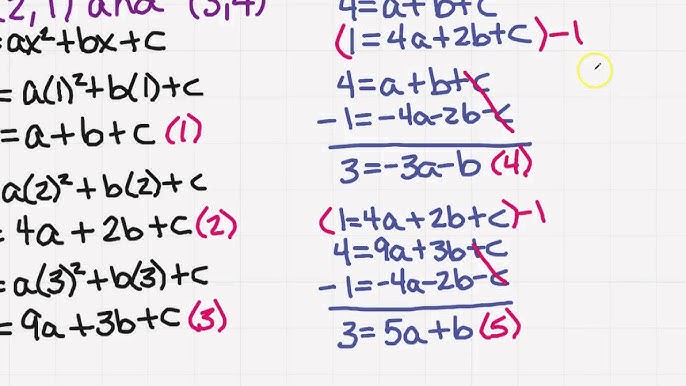 2,1) and (3,4)
=ax²+bx+c
= a(1)²+b(1)+c
= a+b+c (1)
a(2)²+b(2)+c
= 4a+2b+c (2)
= a(3)²+b(3)+c
= 9a+3b+c (3)
4=a+b+c
(1=4a+2b+c)-1
4=a+b+c
-1=-4a-2b-c
3=-3a-b (4)
(1=4a+2b+c)-1
4=9a+3b+c
-1=-4a-2b-c
3=5a+b (5)